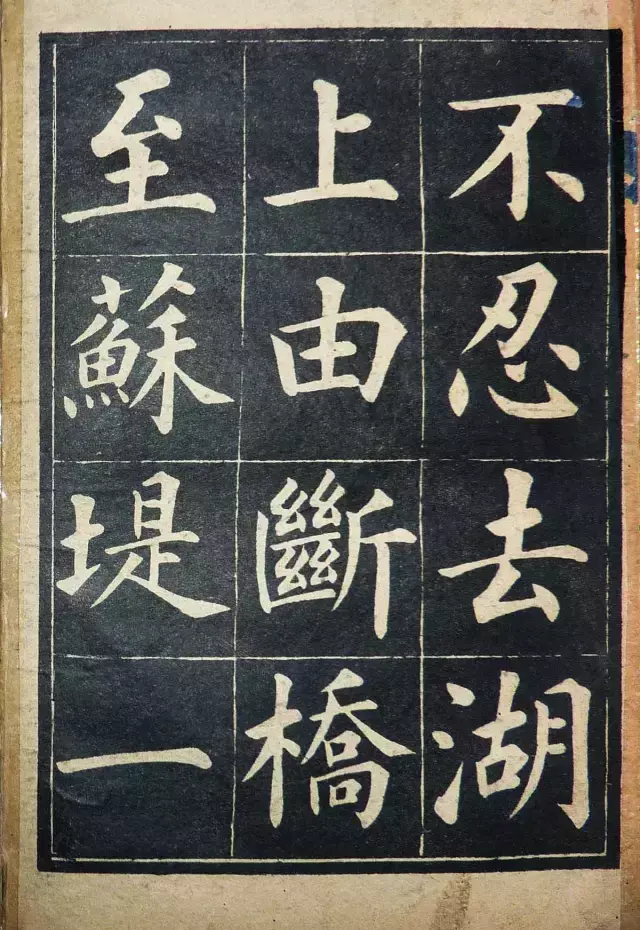 不忍去湖
上由斷橋
至蘇堤一